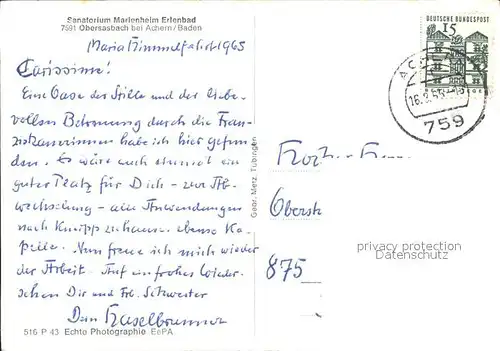 Sanatorium Marienheim Erlenbad
7591 Obersasbach bei Achern/Baden
Maria Himmelfahrt 1965
Carissime!
Eine Oase der Stille und der liebe-
vollen Betreuung durch die Fran-
ziskanerinnen habe ich hier gefun-
den. Es wäre auch einmal ein
guter Platz für Dich - zur Ab-
wechslung - alle Anwendungen
nach Kneipp zuhause, ebenso Ka-
pelle. Nun freue ich mich wieder
der Arbeit. Auf ein frohes Wieder-
sehen Dir und Frl. Schwester
Dein Haselbrunner
516 P 43 Echte Photographie EePA
Gebr. Metz, Tübingen
DEUTSCHE BUNDESPOST
15
16.8.65
759
Oberst
875
privacy protection
AnsichtskartenVersand.com